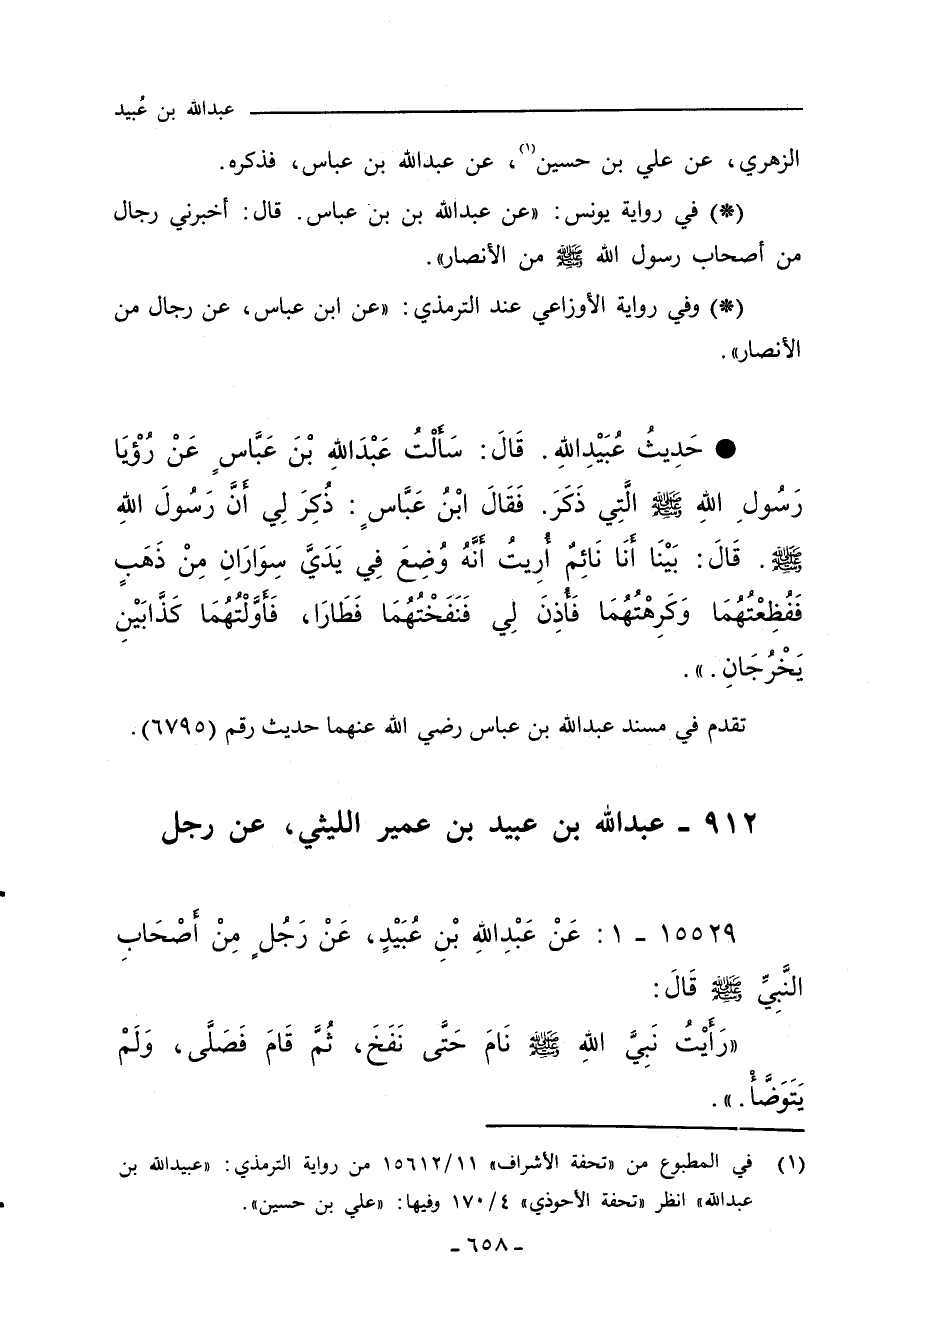 عبدالله بن عُبيد
الزهري، عن علي بن حسين(١)، عن عبدالله بن عباس، فذكره.
(*) في رواية يونس: «عن عبدالله بن بن عباس. قال: أخبرني رجال
من أصحاب رسول الله ﷺ من الأنصار».
(*) وفي رواية الأوزاعي عند الترمذي: «عن ابن عباس، عن رجال من
الأنصار».
● حَدِيثُ عُبَيْدِاللهِ. قَالَ: سَأَلْتُ عَبْدَاللهِ بْنَ عَبَّاسٍ عَنْ رُؤْيَا
رَسُولِ اللهِ ﷺ الَّتِي ذَكَرَ. فَقَالَ ابْنُ عَبَّاسٍ: ذُكِرَ لِي أَنَّ رَسُولَ اللهِ
ﷺ. قَالَ: بَيْنَا أَنَا نَائِمٌ أُرِيتُ أَنَّهُ وُضِعَ فِي يَدَيَّ سِوَارَانِ مِنْ ذَهَبٍ
فَفُظِعْتُهُمَا وَكَرِهْتُهُمَا فَأُذِنَ لِي فَنَفَخْتُهُمَا فَطَارَا، فَأَوَّلْتُهُمَا كَذَّابَيْنِ
يَخْرُجَانِ.».
تقدم في مسند عبدالله بن عباس رضي الله عنهما حديث رقم (٦٧٩٥).
٩١٢ - عبدالله بن عبيد بن عمير الليثي، عن رجل
١٥٥٢٩ - ١: عَنْ عَبْدِاللهِ بْنِ عُبَيْدٍ، عَنْ رَجُلٍ مِنْ أَصْحَابِ
النَّبِيِّ ﷺ قَالَ:
«رَأَيْتُ نَبِيَّ اللهِ ﷺ نَامَ حَتَّى نَفَخَ، ثُمَّ قَامَ فَصَلَّى، وَلَمْ
يَتَوَضَّأْ.».
(١) في المطبوع من «تحفة الأشراف» ١٥٦١٢/١١ من رواية الترمذي: «عبيدالله بن
عبدالله» انظر «تحفة الأحوذي» ١٧٠/٤ وفيها: «علي بن حسين».
- ٦٥٨ -